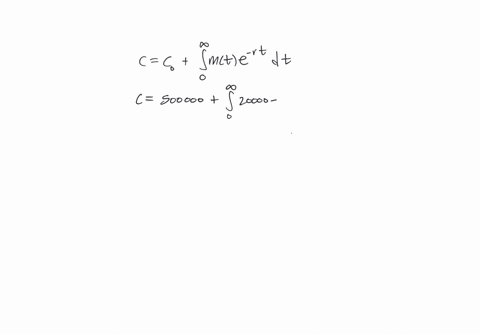 C = C₀ + ∫₀^∞ M(t) e^{-rt} dt
C = 500000 + ∫₀^∞ 20000-